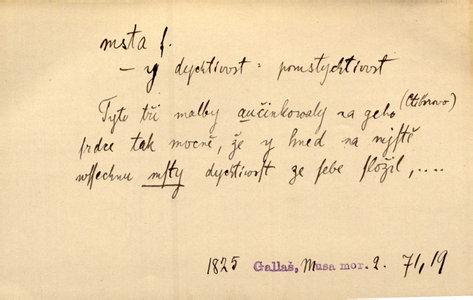 msta f.
– y dychtivost = pomstychtivost
Tyto tři malby aučinkowaly na geho (Ctiborowo)
srdce tak mocně, že y hned na mjstě
wssechnu msty dychtiwost ze sebe složil,....
1825 Gallaš, Musa mor. 2. 71,19